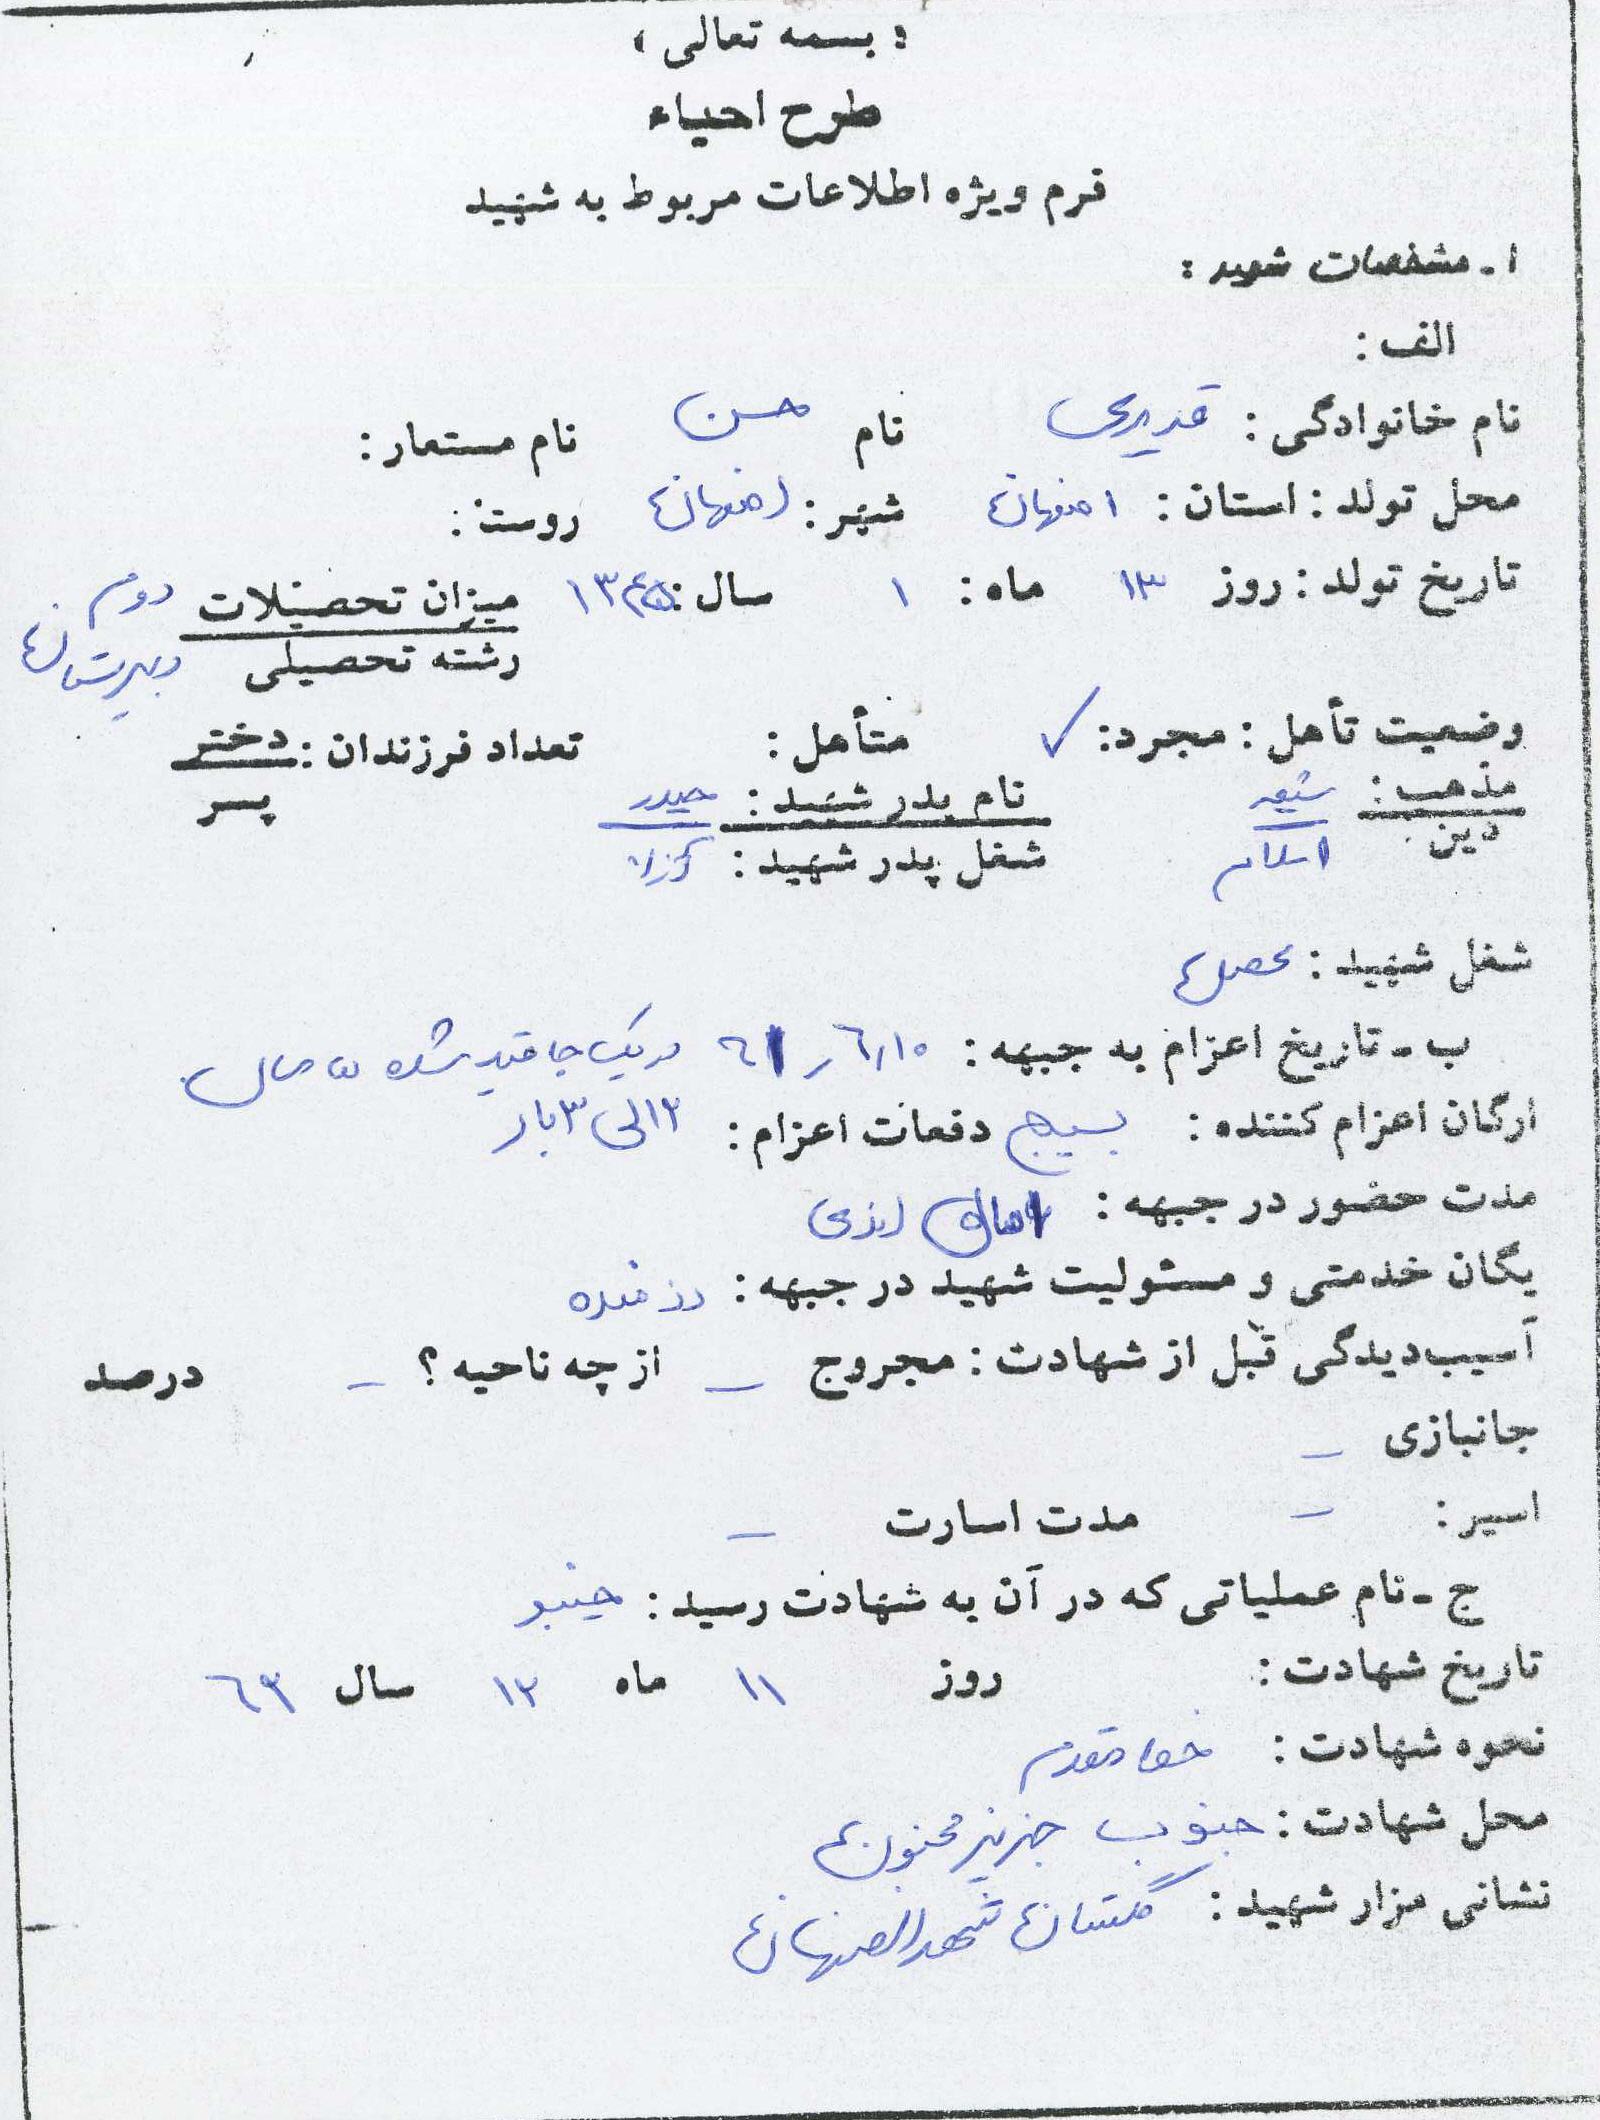 « بسمه تعالی »
طرح احیاء
فرم ویژه اطلاعات مربوط به شهید
۱ـ مشخصات شهید :
الف :
نام خانوادگی : قدیری نام حسن نام مستعار :
محل تولد : استان : اصفهان شهر : اصفهان روستا :
تاریخ تولد : روز ۱۳ ماه : ۱ سال : ۱۳۴۵ میزان تحصیلات دوم
رشته تحصیلی دبیرستان
وضعیت تأهل : مجرد : ✓ متأهل : تعداد فرزندان : دختر
پسر
مذهب : شیعه نام پدر شهید : حیدر
دین : اسلام شغل پدر شهید :
شغل شهید : محصل
ب ـ تاریخ اعزام به جبهه : ۶/۱۰ / ۶۱ در یک جا قید شده ۵ سال
ارگان اعزام کننده : بسیج دفعات اعزام : ۲ الی ۳ بار
مدت حضور در جبهه :
یگان خدمتی و مسئولیت شهید در جبهه : رزمنده
آسیب‌دیدگی قبل از شهادت : مجروح – از چه ناحیه ؟ – درصد
جانبازی –
اسیر : – مدت اسارت –
ج ـ نام عملیاتی که در آن به شهادت رسید : خیبر
تاریخ شهادت : روز ۱۱ ماه ۱۲ سال ۶۲
نحوه شهادت : خط مقدم
محل شهادت : جنوب جزیره مجنون
نشانی مزار شهید : گلستان شهدا اصفهان